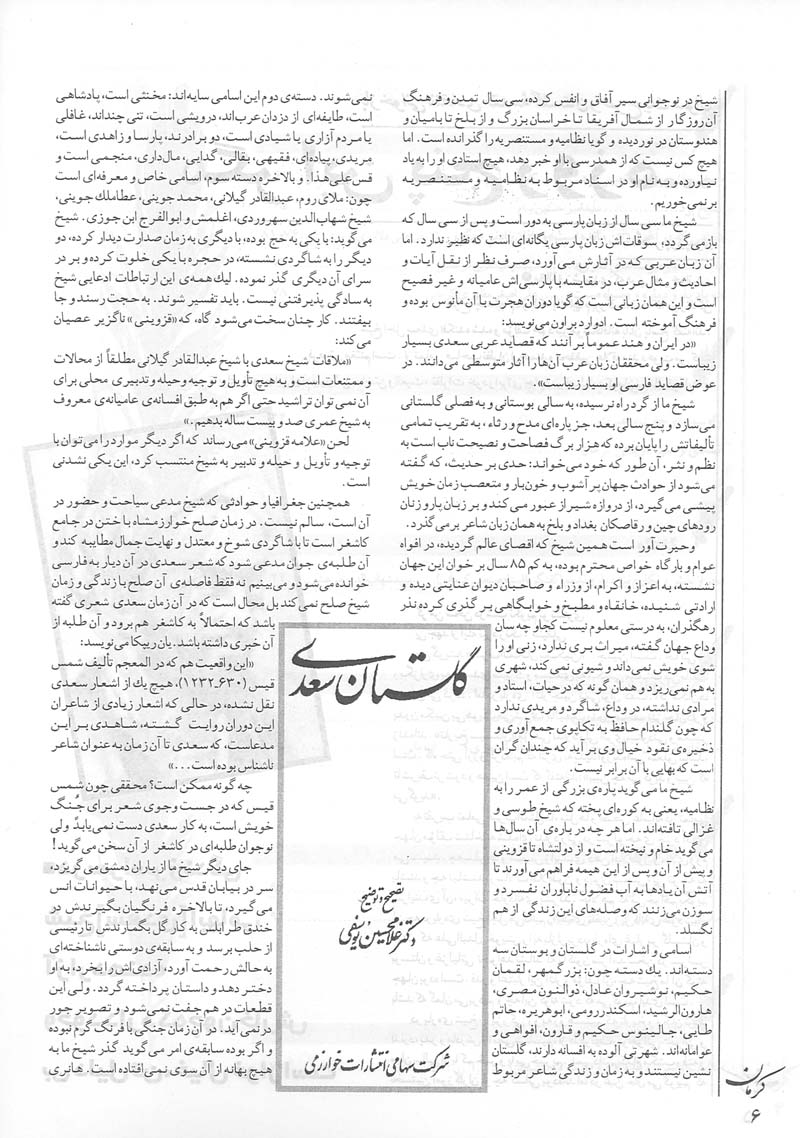 شیخ در نوجوانی سیر آفاق و انفس کرده، سی سال تمدن و فرهنگ
آن روزگار از شمال آفریقا تا خراسان بزرگ و از بلخ تا بامیان و
هندوستان در نوردیده و گویا نظامیه و مستنصریه را گذرانده است. اما
هیچ کس نیست که از همدرسی با او خبر دهد، هیچ استادی او را به یاد
نیاورده و به نام او در اسناد مربوط به نظامیه و مستنصریه
بر نمی‌خوریم.
شیخ ما سی سال از زبان پارسی به دور است و پس از سی سال که
باز می‌گردد، سوقات‌اش زبان پارسی یگانه‌ای است که نظیر ندارد. اما
آن زبان عربی که در آثارش می‌آورد، صرف نظر از نقل آیات و
احادیث و مثال عرب، در مقایسه با پارسی‌اش عامیانه و غیر فصیح
است و این همان زبانی است که گویا دوران هجرت با آن مأنوس بوده و
فرهنگ آموخته است. ادوارد براون می‌نویسد:
«در ایران و هند عموماً بر آنند که قصاید عربی سعدی بسیار
زیباست. ولی محققان زبان عرب آن‌ها را آثار متوسطی می‌دانند. در
عوض قصاید فارسی او بسیار زیباست».
شیخ ما از گرد راه نرسیده، به سالی بوستانی و به فصلی گلستانی
می‌سازد و پنج سالی بعد، جز پاره‌ای مدح و رثاء، به تقریب تمامی
تألیفاتش را پایان برده که هزار برگ فصاحت و نصیحت ناب است به
نظم و نثر، آن طور که خود می‌خواند: حدی بر حدیث، که گفته
می‌شود از حوادث جهان پر آشوب و خون‌بار و متعصب زمان خویش
پیشی می‌گیرد، از دروازه شیراز عبور می‌کند و بر زبان پارو زنان
رودهای چین و رقاصکان بغداد و بلخ به همان زبان شاعر بر می‌گذرد.
و حیرت‌آور است همین شیخ که اقصای عالم گردیده، در افواه
عوام و بارگاه خواص محترم بوده، به کم ۸۵ سال بر خوان این جهان
نشسته، به اعزاز و اکرام، از وزراء و صاحبان دیوان عنایتی دیده و
ارادتی شنیده، خانقاه و مطبخ و خوابگاهی بر گذری کرده نذر
رهگذران، به درستی معلوم نیست کجا و چه سان
وداع جهان گفته، میراث بری ندارد، زنی او را
شوی خویش نمی‌داند و شیونی نمی‌کند، شهری
به هم نمی‌ریزد و همان گونه که در حیات، استاد و
مرادی نداشته، در وداع، شاگرد و مریدی ندارد
که چون گلندام حافظ به تکاپوی جمع‌آوری و
ذخیره‌ی نقود خیال وی بر آید که چندان گران
است که بهایی با آن برابر نیست.
شیخ ما می‌گوید پاره‌ی بزرگی از عمر را به
نظامیه، یعنی به کوره‌ای پخته که شیخ طوسی و
غزالی تافته‌اند. اما هر چه درباره‌ی آن سال‌ها
می‌گوید خام و نپخته است و از دولتشاه تا قزوینی
و پیش از آن و پس از این همه فراهم می‌آورند تا
آتش آن یادها به آب فضول ناباوران نفسرد و
سوزن می‌زنند که وصله‌های این زندگی از هم
نگسلد.
اسامی و اشارات در گلستان و بوستان سه
دسته‌اند. یك دسته چون: بزرگمهر، لقمان
حکیم، نوشیروان عادل، ذوالنون مصری،
هارون‌الرشید، اسکندر رومی، ابوهریره، حاتم
طایی، جالینوس حکیم و قارون، افواهی و
عوامانه‌اند. شهرتی آلوده به افسانه دارند، گلستان
نشین نیستند و به زمان و زندگی شاعر مربوط
نمی‌شوند. دسته‌ی دوم این اسامی سایه‌اند: مخنثی است، پادشاهی
است، طایفه‌ای از دزدان عرب‌اند، درویشی است، تنی چند‌اند، غافلی
یا مردم آزاری یا شیادی است، دو برادرند، پارسا و زاهدی است،
مریدی، پیاده‌ای، فقیهی، بقالی، گدایی، مال‌داری، منجمی است و
قس علی‌هذا. و بالاخره دسته سوم، اسامی خاص و معرفه‌ای است
چون: ملای روم، عبدالقادر گیلانی، محمد جوینی، عطاملك جوینی،
شیخ شهاب‌الدین سهروردی، اغلمش و ابوالفرج ابن جوزی. شیخ
می‌گوید: با یکی به حج بوده، با دیگری به زمان صدارت دیدار کرده، دو
دیگر را به شاگردی نشسته، در حجره با یکی خلوت کرده و بر در
سرای آن دیگری گذر نموده. لیك همه‌ی این ارتباطات ادعایی شیخ
به سادگی پذیرفتنی نیست. باید تفسیر شوند. به حجت رسند و جا
بیفتند. کار چنان سخت می‌شود گاه، که «قزوینی» ناگزیر عصیان
می‌کند:
«ملاقات شیخ سعدی با شیخ عبدالقادر گیلانی مطلقاً از محالات
و ممتنعات است و به هیچ تأویل و توجیه و حیله و تدبیری محلی برای
آن نمی‌توان تراشید حتی اگر هم به طبق افسانه‌ی عامیانه‌ی معروف
به شیخ عمری صد و بیست ساله بدهیم.»
لحن «علامه قزوینی» می‌رساند که اگر دیگر موارد را می‌توان با
توجیه و تأویل و حیله و تدبیر به شیخ منتسب کرد، این یکی نشدنی
است.
همچنین جغرافیا و حوادثی که شیخ مدعی سیاحت و حضور در
آن است، سالم نیست. در زمان صلح خوارزمشاه با ختن در جامع
کاشغر است تا با شاگردی شوخ و معتدل و نهایت جمال مطایبه کند و
آن طلبه‌ی جوان مدعی شود که شعر سعدی در آن دیار به فارسی
خوانده می‌شود و می‌بینیم نه فقط فاصله‌ی آن صلح با زندگی و زمان
شیخ صلح نمی‌کند بل محال است که در آن زمان سعدی شعری گفته
باشد که احتمالاً به کاشغر هم برود و آن طلبه از
آن خبری داشته باشد. یان ریپکا می‌نویسد:
«این واقعیت هم که در المعجم تألیف شمس
قیس (۶۳۰ـ۱۲۳۲)، هیچ یك از اشعار سعدی
نقل نشده، در حالی که اشعار زیادی از شاعران
این دوران روایت گشته، شاهدی بر این
مدعاست، که سعدی تا آن زمان به عنوان شاعر
ناشناس بوده است...»
چه گونه ممکن است؟ محققی چون شمس
قیس که در جست وجوی شعر برای جُنگ
خویش است، به کار سعدی دست نمی‌یابد ولی
نوجوان طلبه‌ای در کاشغر از آن سخن می‌گوید!
جای دیگر شیخ ما از یاران دمشق می‌گریزد،
سر در بیابان قدس می‌نهد، با حیوانات انس
می‌گیرد، تا بالاخره فرنگیان بگیرندش در
خندق طرابلس به کار گل بگمارندش تا رئیسی
از حلب برسد و به سابقه‌ی دوستی ناشناخته‌ای
به حالش رحمت آورد، آزادی‌اش را بخرد، به او
دختر دهد و داستان پرداخته گردد. ولی این
قطعات در هم جفت نمی‌شود و تصویر جور
در نمی‌آید. در آن زمان جنگی با فرنگ گرم نبوده
و اگر بوده سابقه‌ی امر می‌گوید گذر شیخ ما به
هیچ بهانه از آن سوی نمی‌افتاده است. هانری
گلستان سعدی
تصحیح و توضیح
دکتر غلامحسین یوسفی
شرکت سهامی انتشارات خوارزمی
کرمان
۶